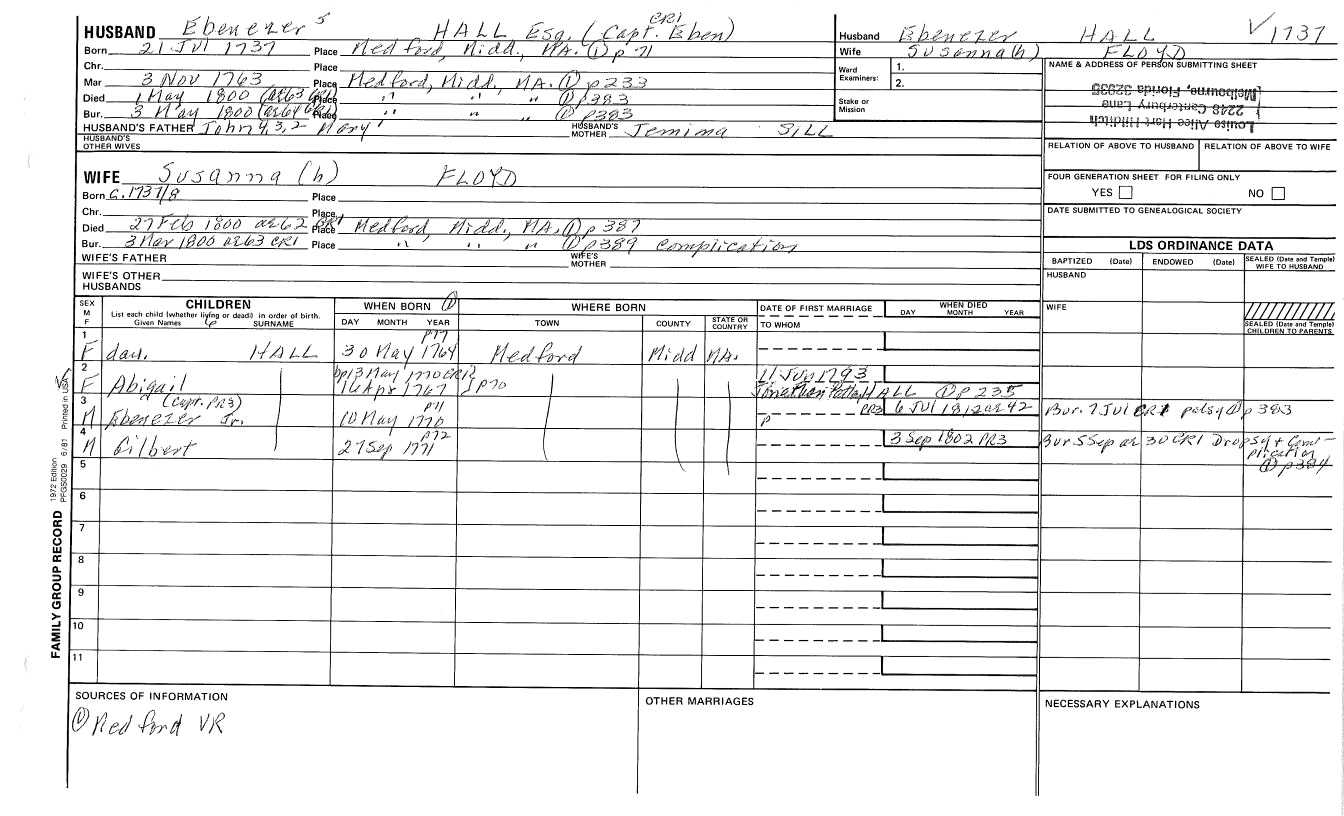 HUSBAND Ebenezer 5 HALL Esq. (Capt. Eben) CR1
Born 21 Jul 1737 Place Medford, Midd., MA. ① p 71
Chr. Place
Mar 3 Nov 1763 Place Medford, Midd., MA. ① p233
Died 1 May 1800 (ae63 CR1) Place " " " ① p383
Bur. 3 May 1800 (ae64 CR1) Place " " ① p383
HUSBAND'S FATHER John 4,3,2 Mary 1 HUSBAND'S MOTHER Jemima SILL
HUSBAND'S OTHER WIVES
WIFE Susanna (h) FLOYD
Born c. 1737/8 Place
Chr. Place
Died 27 Feb 1800 ae62 CR1 Place Medford, Midd., MA. ① p 387
Bur. 3 Mar 1800 ae63 CR1 Place " " " ① p389 complication
WIFE'S FATHER WIFE'S MOTHER
WIFE'S OTHER HUSBANDS
Husband Ebenezer HALL V 1737
Wife Susanna(h) FLOYD
Ward Examiners: 1.
2.
Stake or Mission
NAME & ADDRESS OF PERSON SUBMITTING SHEET
Louise Alice Hart Hilditch
2248 Canterbury Lane
Melbourne, Florida 32935
RELATION OF ABOVE TO HUSBAND RELATION OF ABOVE TO WIFE
FOUR GENERATION SHEET FOR FILING ONLY
YES NO
DATE SUBMITTED TO GENEALOGICAL SOCIETY
LDS ORDINANCE DATA
BAPTIZED (Date) ENDOWED (Date) SEALED (Date and Temple) WIFE TO HUSBAND
HUSBAND
WIFE
SEALED (Date and Temple) CHILDREN TO PARENTS
SEX M F
CHILDREN
List each child (whether living or dead) in order of birth.
Given Names SURNAME
WHEN BORN ①
DAY MONTH YEAR
WHERE BORN
TOWN COUNTY STATE OR COUNTRY
DATE OF FIRST MARRIAGE
TO WHOM
WHEN DIED
DAY MONTH YEAR
1 F dau. HALL 30 May 1764 p77 Medford Midd MA.
2 F Abigail bp 13 May 1770 CR1 16 Apr 1767 p70 11 Jun 1793 Jonathan HALL ① p 235
3 M Ebenezer Jr. (Capt. PR3) 10 May 1770 p71 PR3 6 Jul 1812 ae 42 Bur. 7 Jul CR1 palsy ① p 383
4 M Gilbert 27 Sep 1771 p72 3 Sep 1802 PR3 Bur 5 Sep ae 30 CR1 Dropsy + Complication ① p384
5
6
7
8
9
10
11
FAMILY GROUP RECORD 1972 Edition PFGS0029 6/81 Printed in USA
SOURCES OF INFORMATION
① Medford VR
OTHER MARRIAGES
NECESSARY EXPLANATIONS